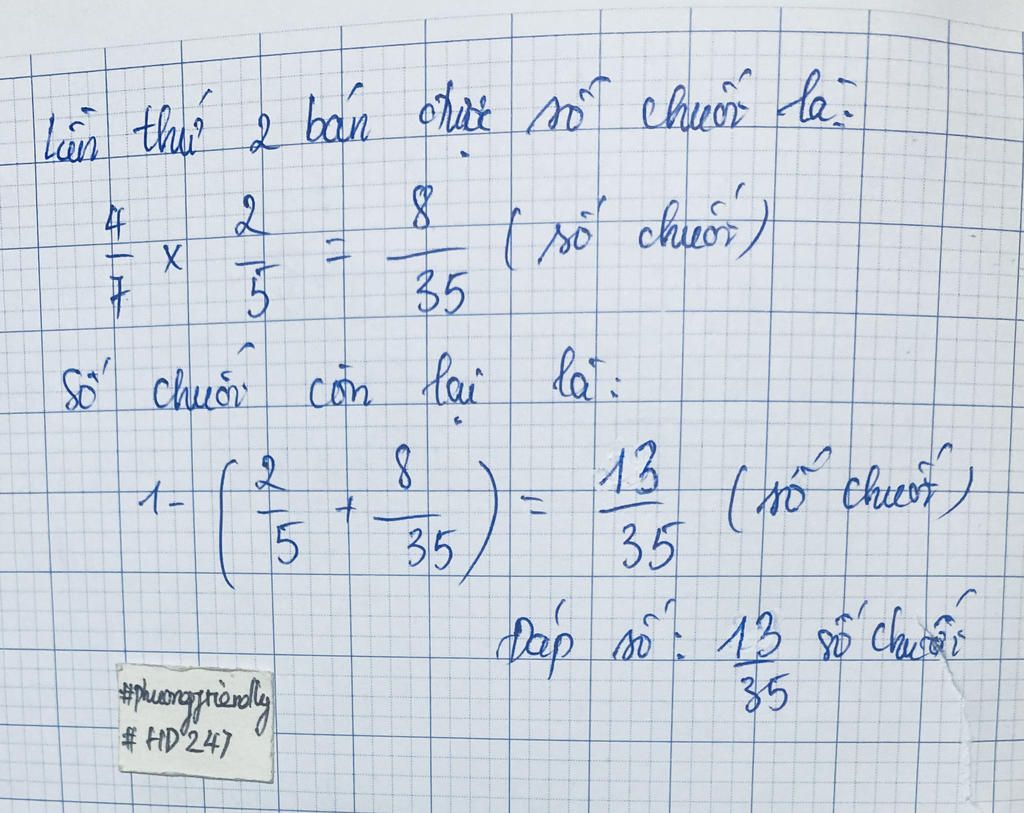 Lần thứ 2 bán được số chuối là:
4/7 x 2/5 = 8/35 (số chuối)
Số chuối còn lại là:
1 - (2/5 + 8/35) = 13/35 (số chuối)
Đáp số: 13/35 số chuối
#phuongfriendly
# HD 247